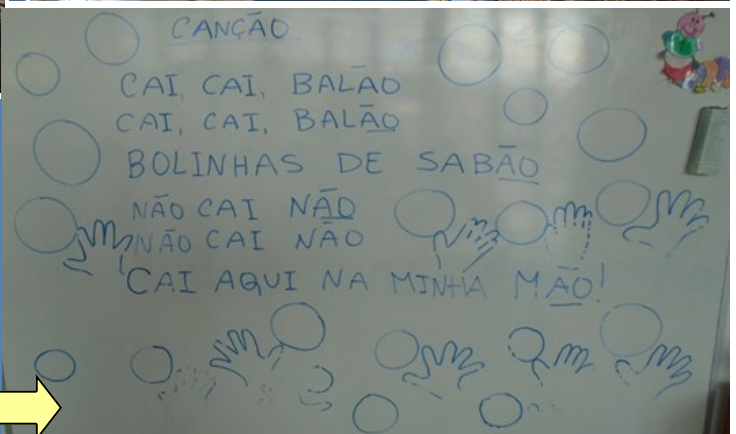 CANÇÃO
CAI, CAI, BALÃO
CAI, CAI, BALÃO
BOLINHAS DE SABÃO
NÃO CAI NÃO
NÃO CAI NÃO
CAI AQUI NA MINHA MÃO!